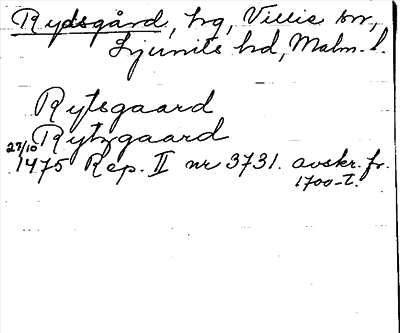 Rydsgård, hg, Villie sn,
Ljunits hd, Malm. l.
Rytsgaard
Rytzgaard
27/10
1475 Rep. II nr 3731. avskr. fr.
1700-t.